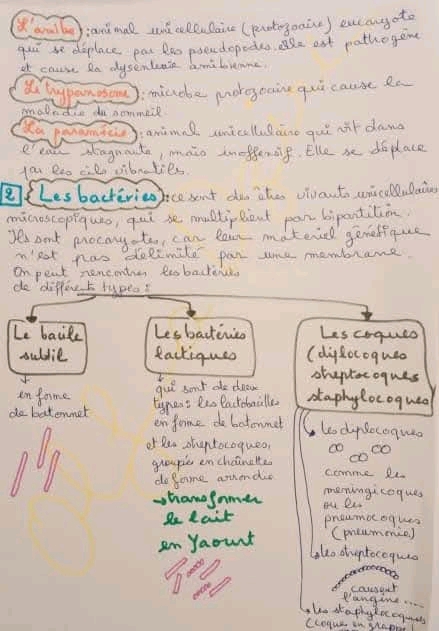 L'amibe : animal unicellulaire (protozoaire) eucaryote
qui se déplace par les pseudopodes. elle est pathogène
et cause la dysenterie amibienne.
Le trypanosome : microbe protozoaire qui cause la
maladie du sommeil.
La paramécie : animal unicellulaire qui vit dans
l'eau stagnante, mais inoffensif. Elle se déplace
par les cils vibratiles.
2 Les bactéries : ce sont des êtres vivants unicellulaires
microscopiques, qui se multiplient par bipartition.
Ils sont procaryotes, car leur matériel génétique
n'est pas délimité par une membrane.
On peut rencontrer les bactéries
de différents types :
Le bacille
subtil
en forme
de batonnet
Les bactéries
lactiques
qui sont de deux
types : les lactobacilles
en forme de batonnet
et les streptocoques,
groupés en chaînettes
de forme arrondie
→ transformer
le lait
en Yaourt
Les coques
(diplocoques
streptocoques
staphylocoques)
Les diplocoques
comme les
meningicoques
ou les
pneumocoques
(pneumonie)
les streptocoques
causent
l'angine....
les staphylocoques
(coque en grappe)